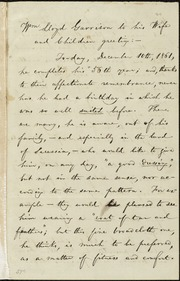 Wm Lloyd Garrison to his Wife
and Children greeting:—
To-day, December 10th, 1861,
he completes his 56th year; and, thanks
to their affectionate remembrance, never
has he had a birthday in which he
was so well suited before. There
are many, he is aware, out of his
family, and especially in the land
of Secessia, who would like to give
him, on any day, "a good dressing,"
but not in the same sense, nor ac-
cording to the same pattern. For ex-
ample— they would be pleased to see
him wearing a "coat of tar and
feathers"; but this fine broadcloth one,
he thinks, is much to be preferred,
as a matter of fitness and comfort.